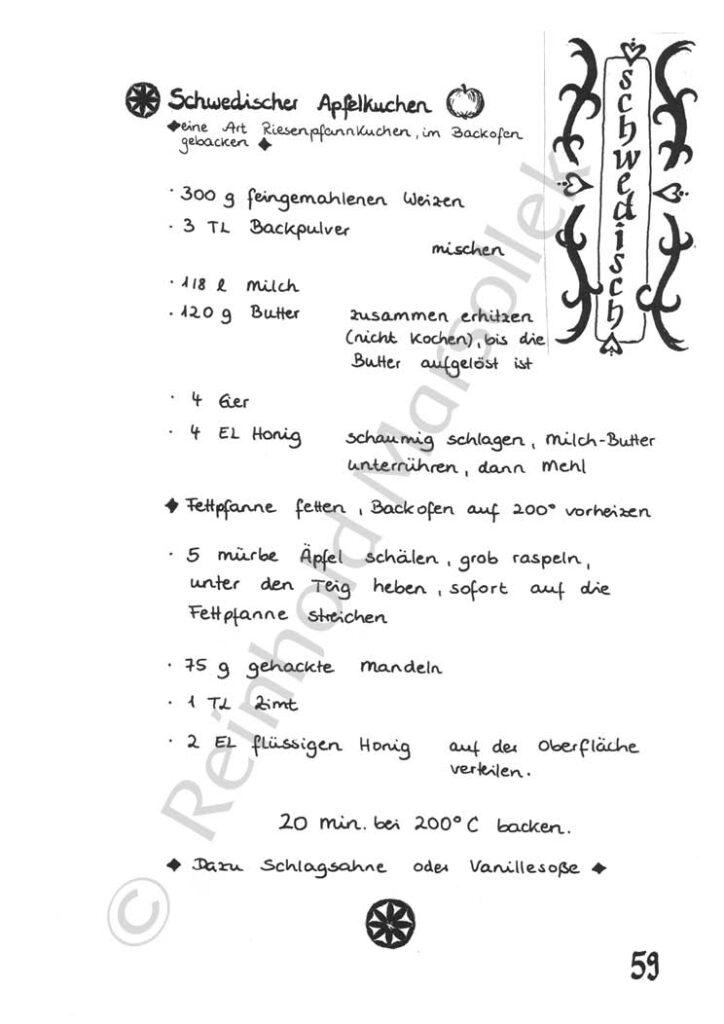 Schwedischer Apfelkuchen
eine Art Riesenpfannkuchen, im Backofen
gebacken
schwedisch
· 300 g feingemahlenen Weizen
· 3 TL Backpulver
mischen
· 1/8 l Milch
· 120 g Butter zusammen erhitzen
(nicht kochen), bis die
Butter aufgelöst ist
· 4 Eier
· 4 EL Honig schaumig schlagen, Milch-Butter
unterrühren, dann Mehl
Fettpfanne fetten, Backofen auf 200° vorheizen
· 5 mürbe Äpfel schälen, grob raspeln,
unter den Teig heben, sofort auf die
Fettpfanne streichen
· 75 g gehackte Mandeln
· 1 TL Zimt
· 2 EL flüssigen Honig auf der Oberfläche
verteilen.
20 min. bei 200°C backen.
Dazu Schlagsahne oder Vanillesoße
59
© Reinhold Marsollek